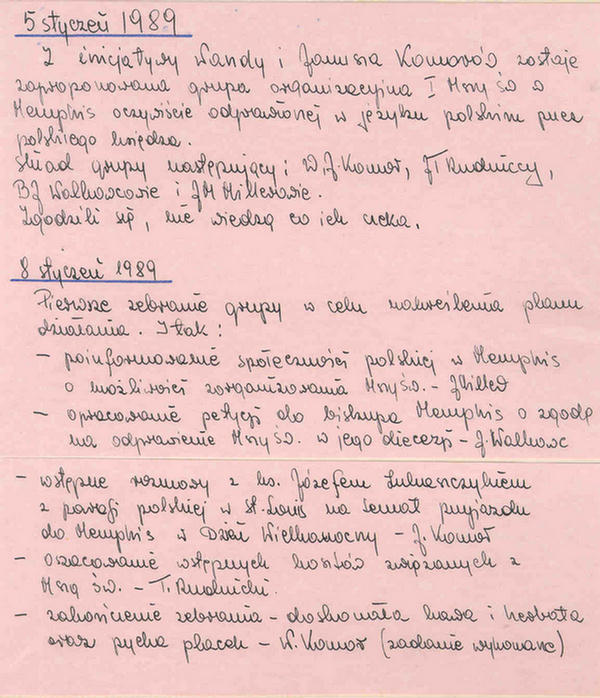 5 styczeń 1989
Z inicjatywy Wandy i Janusza Komorów zostaje
zaproponowana grupa organizacyjna I Mszy Św w
Memphis oczywiście odprawionej w języku polskim przez
polskiego księdza.
Skład grupy następujący: W,J. Komor, JT Rudniccy,
BJ Walkowcowie i JM Millerowie.
Zgodzili się, nie wiedzą co ich czeka.
8 styczeń 1989
Pierwsze zebranie grupy w celu nakreślenia planu
działania. I tak:
- poinformowanie społeczności polskiej w Memphis
o możliwości zorganizowania Mszy Św. - J Miller
- opracowanie petycji do biskupa Memphis o zgodę
na odprawienie Mszy Św. w jego diecezji - J. Walkowc
- wstępne rozmowy z ks. Józefem
z parafi polskiej w St. Louis na temat przyjazdu
do Memphis w Dzień Wielkanocny - J. Komor
- oszacowanie wstępnych kosztów związanych z
Mszą Św. - T. Rudnicki.
- zakończenie zebrania - doskonała kawa i herbata
oraz pycha placek - W. Komor (zadanie wykonane)